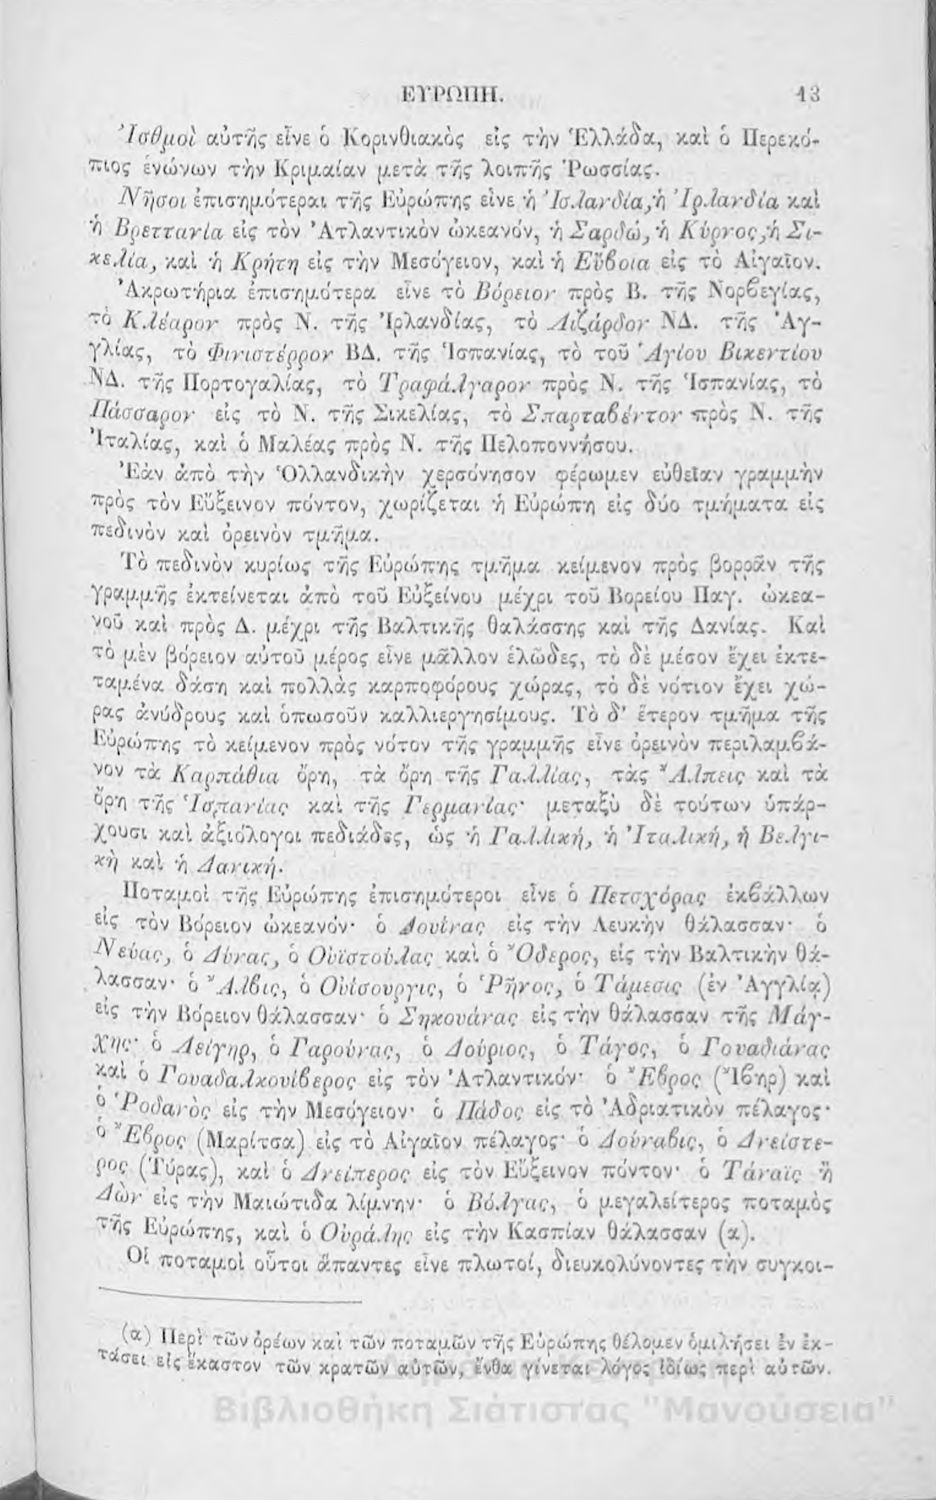 ΕΥΡΩΠΗ. 13
Ἰσθμοὶ αὐτῆς εἶνε ὁ Κορινθιακὸς εἰς τὴν Ἑλλάδα, καὶ ὁ Περεκό-
πιος ἑνώνων τὴν Κριμαίαν μετὰ τῆς λοιπῆς Ῥωσσίας.
Νῆσοι ἐπισημότεραι τῆς Εὐρώπης εἶνε ἡ Ἰσλανδία, ἡ Ἰρλανδία καὶ
ἡ Βρεττανία εἰς τὸν Ἀτλαντικὸν ὠκεανόν, ἡ Σαρδώ, ἡ Κύρνος, ἡ Σι-
κελία, καὶ ἡ Κρήτη εἰς τὴν Μεσόγειον, καὶ ἡ Εὔβοια εἰς τὸ Αἰγαῖον.
Ἀκρωτήρια ἐπισημότερα εἶνε τὸ Βόρειον πρὸς Β. τῆς Νορβεγίας,
τὸ Κλέαρον πρὸς Ν. τῆς Ἰρλανδίας, τὸ Λιζάρδον ΝΔ. τῆς Ἀγ-
γλίας, τὸ Φινιστέρρον ΒΔ. τῆς Ἱσπανίας, τὸ τοῦ Ἁγίου Βικεντίου
ΝΔ. τῆς Πορτογαλίας, τὸ Τραφάλγαρον πρὸς Ν. τῆς Ἱσπανίας, τὸ
Πάσσαρον εἰς τὸ Ν. τῆς Σικελίας, τὸ Σπαρταβέντον πρὸς Ν. τῆς
Ἰταλίας, καὶ ὁ Μαλέας πρὸς Ν. τῆς Πελοποννήσου.
Ἐὰν ἀπὸ τὴν Ὁλλανδικὴν χερσόνησον φέρωμεν εὐθεῖαν γραμμὴν
πρὸς τὸν Εὔξεινον πόντον, χωρίζεται ἡ Εὐρώπη εἰς δύο τμήματα εἰς
πεδινὸν καὶ ὀρεινὸν τμῆμα.
Τὸ πεδινὸν κυρίως τῆς Εὐρώπης τμῆμα κείμενον πρὸς βορρᾶν τῆς
γραμμῆς ἐκτείνεται ἀπὸ τοῦ Εὐξείνου μέχρι τοῦ Βορείου Παγ. ὠκεα-
νοῦ καὶ πρὸς Δ. μέχρι τῆς Βαλτικῆς θαλάσσης καὶ τῆς Δανίας. Καὶ
τὸ μὲν βόρειον αὐτοῦ μέρος εἶνε μᾶλλον ἑλῶδες, τὸ δὲ μέσον ἔχει ἐκτε-
ταμένα δάση καὶ πολλὰς καρποφόρους χώρας, τὸ δὲ νότιον ἔχει χώ-
ρας ἀνύδρους καὶ ὁπωσοῦν καλλιεργησίμους. Τὸ δ' ἕτερον τμῆμα τῆς
Εὐρώπης τὸ κείμενον πρὸς νότον τῆς γραμμῆς εἶνε ὀρεινὸν περιλαμβά-
νον τὰ Καρπάθια ὄρη, τὰ ὄρη τῆς Γαλλίας, τὰς Ἄλπεις καὶ τὰ
ὄρη τῆς Ἱσπανίας καὶ τῆς Γερμανίας· μεταξὺ δὲ τούτων ὑπάρ-
χουσι καὶ ἀξιόλογοι πεδιάδες, ὡς ἡ Γαλλική, ἡ Ἰταλική, ἡ Βελγι-
κὴ καὶ ἡ Δανική.
Ποταμοὶ τῆς Εὐρώπης ἐπισημότεροι εἶνε ὁ Πετσχόρας ἐκβάλλων
εἰς τὸν Βόρειον ὠκεανόν· ὁ Δουίνας εἰς τὴν Λευκὴν θάλασσαν· ὁ
Νεύας, ὁ Δύνας, ὁ Οὐϊστούλας καὶ ὁ Ὄδερος, εἰς τὴν Βαλτικὴν θά-
λασσαν· ὁ Ἄλβις, ὁ Οὐίσουργις, ὁ Ῥῆνος, ὁ Τάμεσις (ἐν Ἀγγλίᾳ)
εἰς τὴν Βόρειον θάλασσαν· ὁ Σηκουάνας εἰς τὴν θάλασσαν τῆς Μάγ-
χης· ὁ Λείγηρ, ὁ Γαρούνας, ὁ Δούριος, ὁ Τάγος, ὁ Γουαδιάνας
καὶ ὁ Γουαδαλκουίβερος εἰς τὸν Ἀτλαντικόν· ὁ Ἔβρος (Ἴβηρ) καὶ
ὁ Ῥοδανὸς εἰς τὴν Μεσόγειον· ὁ Πάδος εἰς τὸ Ἀδριατικὸν πέλαγος·
ὁ Ἔβρος (Μαρίτσα) εἰς τὸ Αἰγαῖον πέλαγος· ὁ Δούναβις, ὁ Δνείστε-
ρος (Τύρας), καὶ ὁ Δνείπερος εἰς τὸν Εὔξεινον πόντον· ὁ Τάναϊς ἢ
Δὼν εἰς τὴν Μαιώτιδα λίμνην· ὁ Βόλγας, ὁ μεγαλείτερος ποταμὸς
τῆς Εὐρώπης, καὶ ὁ Οὐράλης εἰς τὴν Κασπίαν θάλασσαν (α).
Οἱ ποταμοὶ οὗτοι ἅπαντες εἶνε πλωτοί, διευκολύνοντες τὴν συγκοι-
(α) Περὶ τῶν ὀρέων καὶ τῶν ποταμῶν τῆς Εὐρώπης θέλομεν ὁμιλήσει ἐν ἐκ-
τάσει εἰς ἕκαστον τῶν κρατῶν αὐτῶν, ἔνθα γίνεται λόγος ἰδίως περὶ αὐτῶν.
Βιβλιοθήκη Σιάτιστας "Μανούσεια"